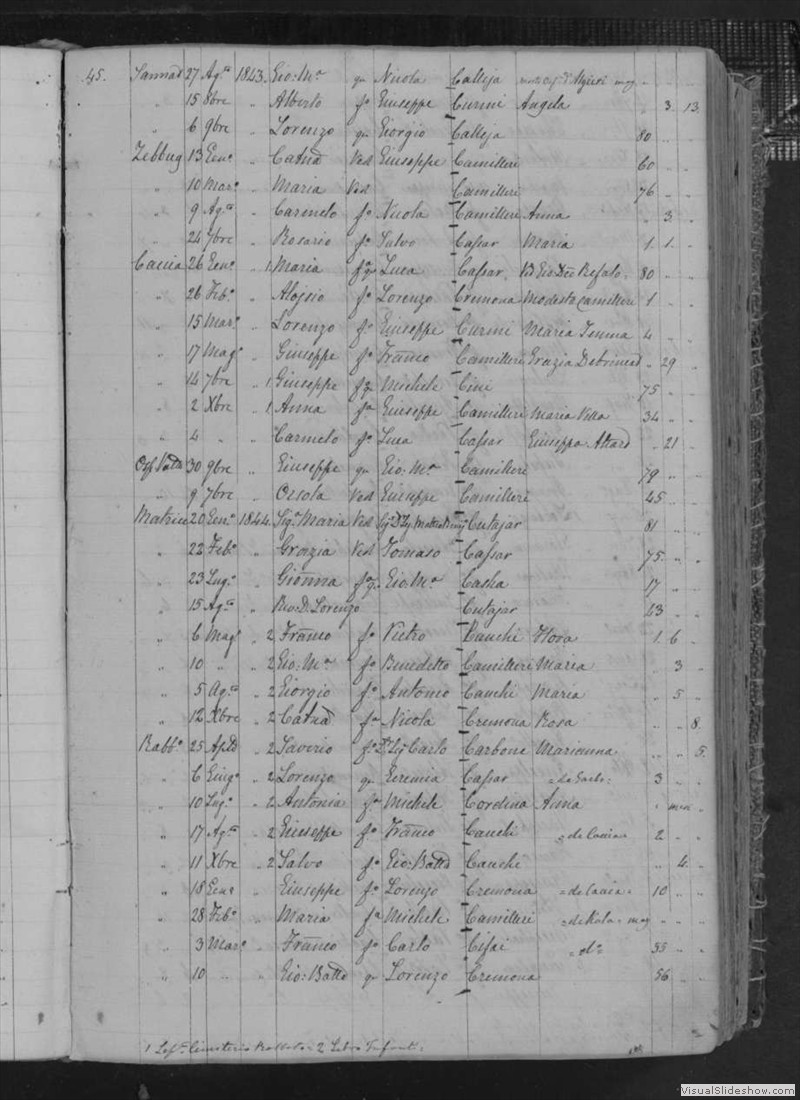 45. Sannat 27 Ag.to 1843. Gio: M.a q.m Nicola Calleja
" 15 8bre " Alberto f.o Giuseppe Curmi Angela " 3 13
" 6 9bre " Lorenzo q.m Giorgio Calleja 80 " "
Zebbug 13 Gen.o " Catna Ved Giuseppe Camilleri 60 " "
" 10 Mar.o " Maria Ved Camilleri 76 " "
" 9 Ag.to " Carmelo f.o Nicola Camilleri Anna " 3 "
" 24 7bre " Rosario f.o Salvo Cassar Maria 1 1 "
Caccia 26 Gen.o " 1 Maria Luca Cassar 80 " "
" 26 Feb.o " Aloisio f.o Lorenzo Cremona Modesta Camilleri 1 " "
" 15 Mar.o " Lorenzo f.o Giuseppe Curmi Maria 4 " "
" 17 Mag.o " Giuseppe f.o Franco Camilleri Grazia " 29
" 14 7bre " 1 Giuseppe Michele Cini 75 " "
" 2 Xbre " 1 Anna f.a Giuseppe Camilleri Maria Vella 34 " "
" 4 " " Carmelo f.o Luca Cassar Giuseppa Attard " 21 "
30 9bre " Giuseppe q.m Gio: M.a Camilleri 79 " "
" 9 7bre " Orsola Ved Giuseppe Camilleri 45 " "
Matrice 20 Gen.o 1844. Sig.a Maria Ved Cutajar 81 " "
" 22 Feb.o " Grazia Ved Tomaso Cassar 75 " "
" 23 Lug.o " Gionna Gio: M.a Casha 17 " "
" 15 Ag.to " Rev. D. Lorenzo Cutajar 43 " "
" 6 Mag.o " 2 Franco f.o Pietro Cauchi Flora 1 6 "
" 10 " " 2 Gio: M.a f.o Benedetto Camilleri Maria " 3 "
" 5 Ag.to " 2 Giorgio f.o Antonio Cauchi Maria " 5 "
" 12 Xbre " 2 Catna f.a Nicola Cremona Rosa " " 8
Rabb.o 25 " 2 Saverio f.o Carlo Carbone Marianna " " 5
" 6 Giug.o " 2 Lorenzo q.m Geremia Cassar 3 " "
" 10 Lug.o " 2 Antonia f.a Michele Cordina Anna
" 17 Ag.to " 2 Giuseppe f.o Franco Cauchi = de Caccia = 2 " "
" 11 Xbre " 2 Salvo f.o Gio: Batta Cauchi " 4 "
" 18 Gen.o " Giuseppe f.o Lorenzo Cremona = de Caccia = 10 " "
" 28 Feb.o " Maria f.a Michele Camilleri
" 3 Mar.o " Franco f.o Carlo = d.o = 55 " "
" 10 " " Gio: Batta q.m Lorenzo Cremona 56 " "
1 Cimiterio 2 Libro Infanti.
VisualSlideshow.com